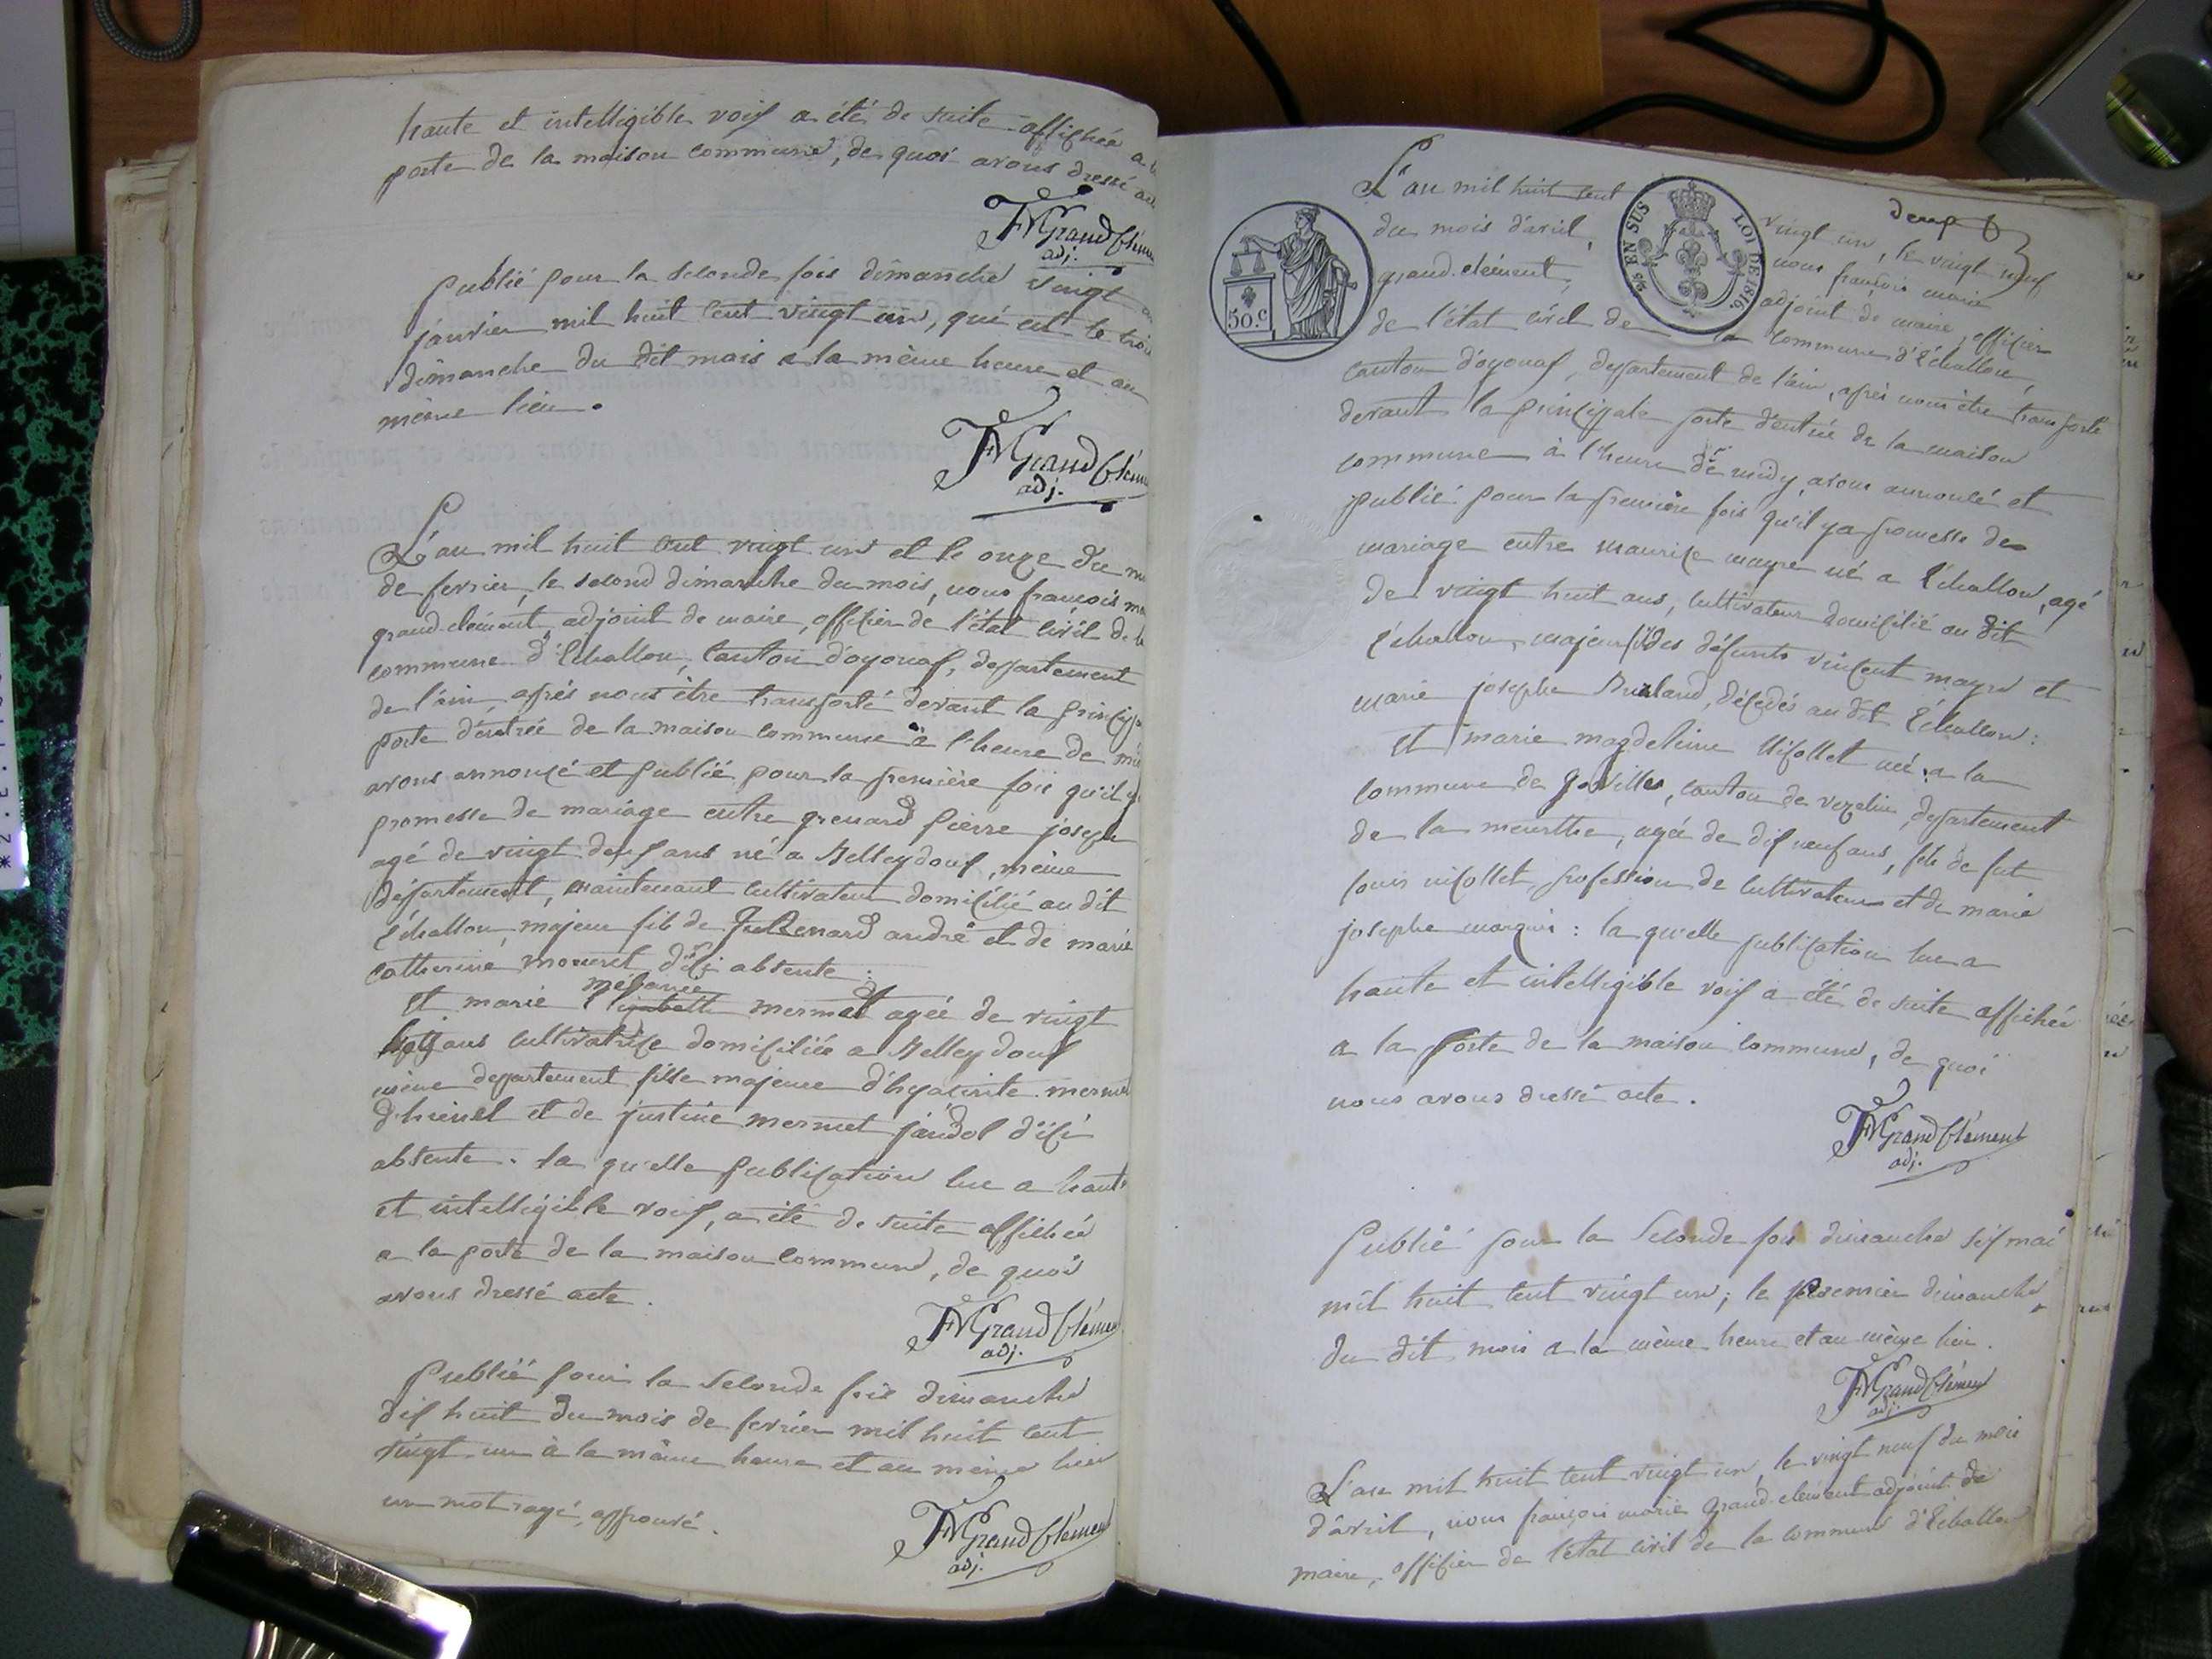 haute et intelligible voix a été de suite affichée a
porte de la maison commune, de quoi avons dressé
FMGrand Clém
adj.
publié pour la seconde fois dimanche vingt
janvier mil huit cent vingt un, qui est le
dimanche du dit mois a la même heure et au
même lieu.
FMGrand Clém
adj.
L'an mil huit cent vingt un et le onze du
de fevrier, le second dimanche du mois, nous françois
grand clément, adjoint de maire, officier de l'état civil de
commune d'Echallon, canton d'oyonax, departement
de l'ain, après nous être transporté devant la
porte d'entrée de la maison commune à l'heure de
avons annoncé et publié pour la première fois qu'il y
promesse de mariage entre grenard pierre joseph
agé de vingt deux ans né a Belleydoux, même
département, maintenant cultivateur domicilié au dit
Echallon, majeur fils de andré et de marie
catherine d'ici absente :
mélanie
et marie mermet agée de vingt
ans cultivatrice domiciliée a Belleydoux
même departement fille majeure d'hyacinte
et de justine mermet d'ici
absente. la qu'elle publication lue a haute
et intelligible voix, a été de suite affichée
a la porte de la maison commune, de quoi
avons dressé acte.
FMGrand Cléme
adj.
Publié pour la seconde fois dimanche
dix huit du mois de fevrier mil huit cent
vingt un à la même heure et au même lieu
un mot rayé, approuvé.
FMGrand Clémen
adj.
deux
L'an mil huit cent vingt un, le vingt neuf
du mois d'avril, nous françois marie
grand clément, adjoint de maire, officier
de l'état civil de la commune d'Echallon,
50.C
EN SUS LOI DE 1816.
canton d'oyonax, departement de l'ain, après nous être transporté
devant la principale porte d'entrée de la maison
commune à l'heure de midy, avons annoncé et
publié pour la première fois qu'il y a promesse de
mariage entre maurice mayre né a Echallon, agé
de vingt huit ans, cultivateur domicilié au dit
Echallon, majeur fils des défunts vincent mayre et
marie josephe décédés au dit Echallon :
et marie magdeleine nicollet née a la
commune de canton de vezelise, departement
de la meurthe, agée de dix neuf ans, fille de fut
louis nicollet, profession de cultivateur et de marie
josephe : la qu'elle publication lue a
haute et intelligible voix a été de suite affichée
a la porte de la maison commune, de quoi
nous avons dressé acte.
FMGrand Clément
adj.
Publié pour la seconde fois dimanche six mai
mil huit cent vingt un; le premier dimanche
du dit mois a la même heure et au même lieu.
FMGrand Clément
adj.
L'an mil huit cent vingt un, le vingt neuf du mois
d'avril, nous françois marie grand clément adjoint de
maire, officier de l'état civil de la commune d'Echallon